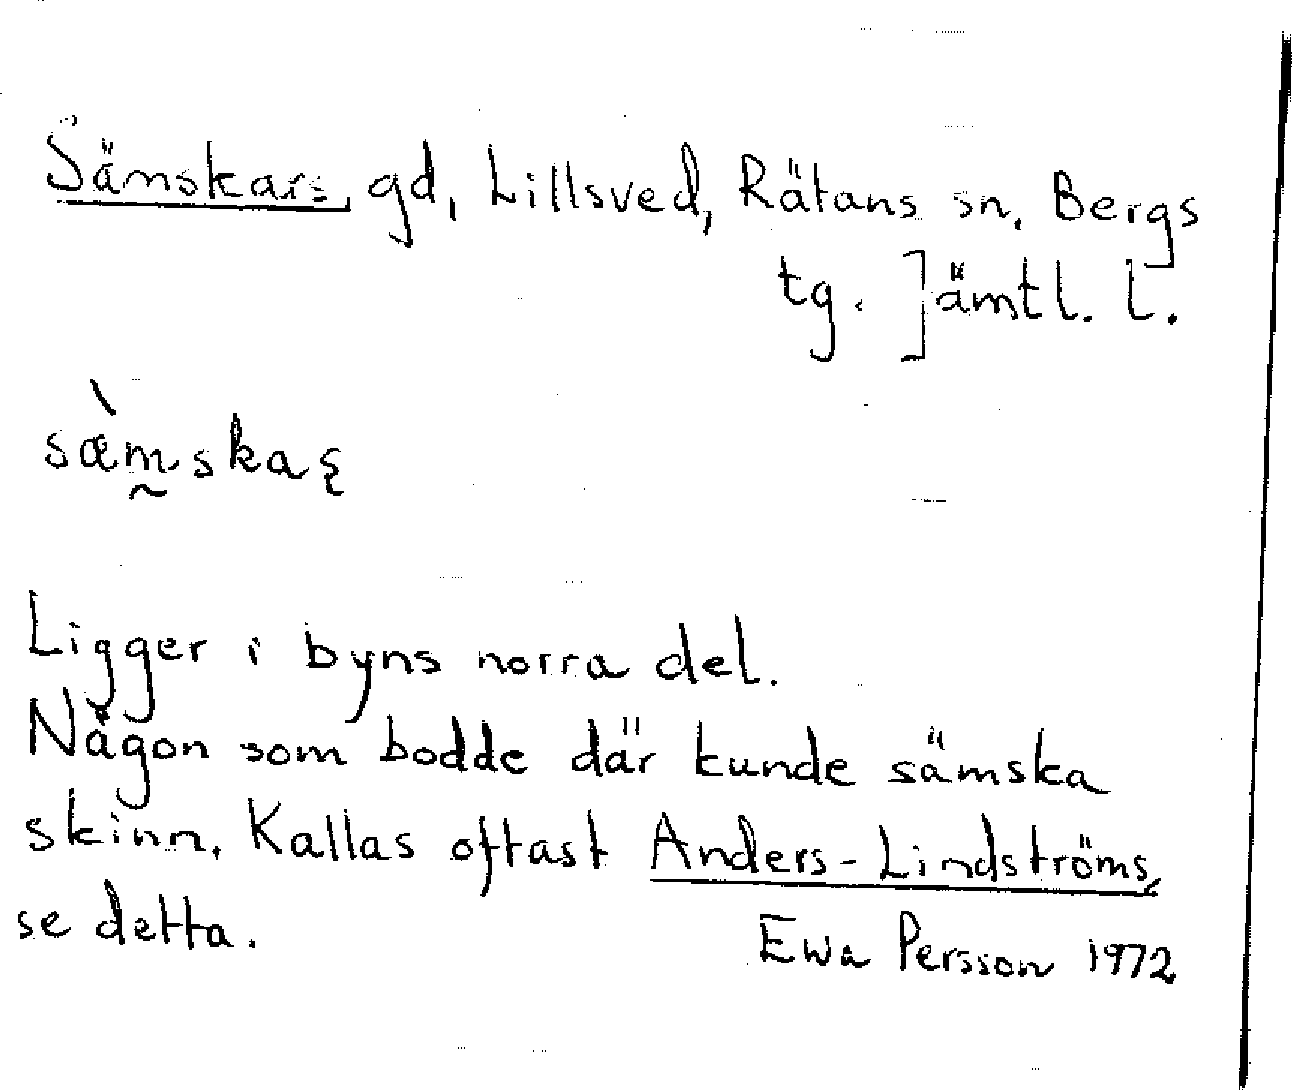 Sämskars, gd, Lillsved, Rätans sn, Bergs
tg. Jämtl. l.
sæ̀m̰skaʂ
Ligger i byns norra del.
Någon som bodde där kunde sämska
skinn. Kallas oftast Anders-Lindströms,
se detta.
Ewa Persson 1972